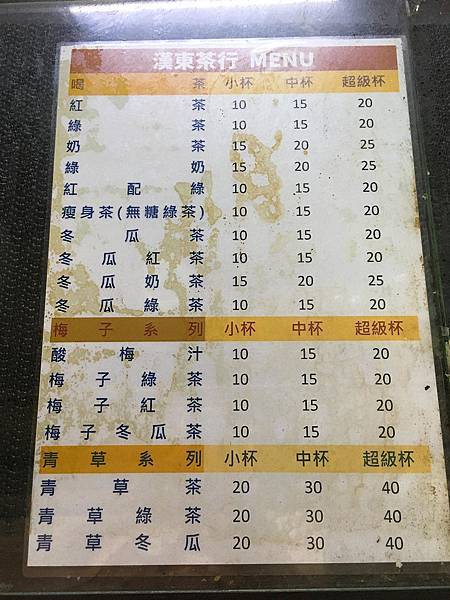 漢東茶行 MENU
喝茶 小杯 中杯 超級杯
紅茶 10 15 20
綠茶 10 15 20
奶茶 15 20 25
綠奶 15 20 25
紅配綠 10 15 20
瘦身茶(無糖綠茶) 10 15 20
冬瓜茶 10 15 20
冬瓜紅茶 10 15 20
冬瓜奶茶 15 20 25
冬瓜綠茶 10 15 20
梅子系列 小杯 中杯 超級杯
酸梅汁 10 15 20
梅子綠茶 10 15 20
梅子紅茶 10 15 20
梅子冬瓜茶 10 15 20
青草系列 小杯 中杯 超級杯
青草茶 20 30 40
青草綠茶 20 30 40
青草冬瓜 20 30 40